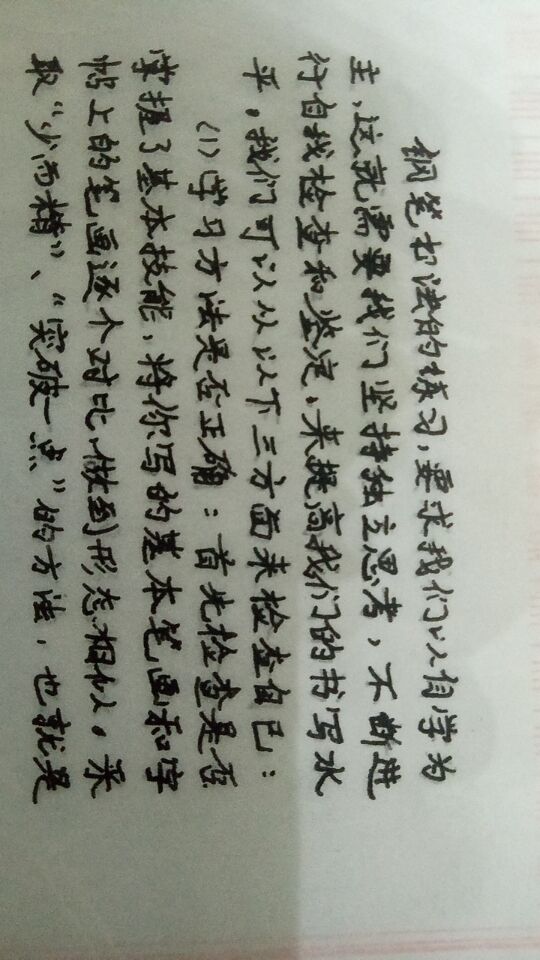 钢笔书法的练习，要求我们以自学为
主，这就需要我们坚持独立思考，不断进
行自我检查和鉴定，来提高我们的书写水
平，我们可以从以下三方面来检查自己：
(1)学习方法是否正确：首先检查是否
掌握了基本技能，将你写的基本笔画和字
帖上的笔画逐个对比，做到形态相似。采
取“少而精”、“突破一点”的方法，也就是